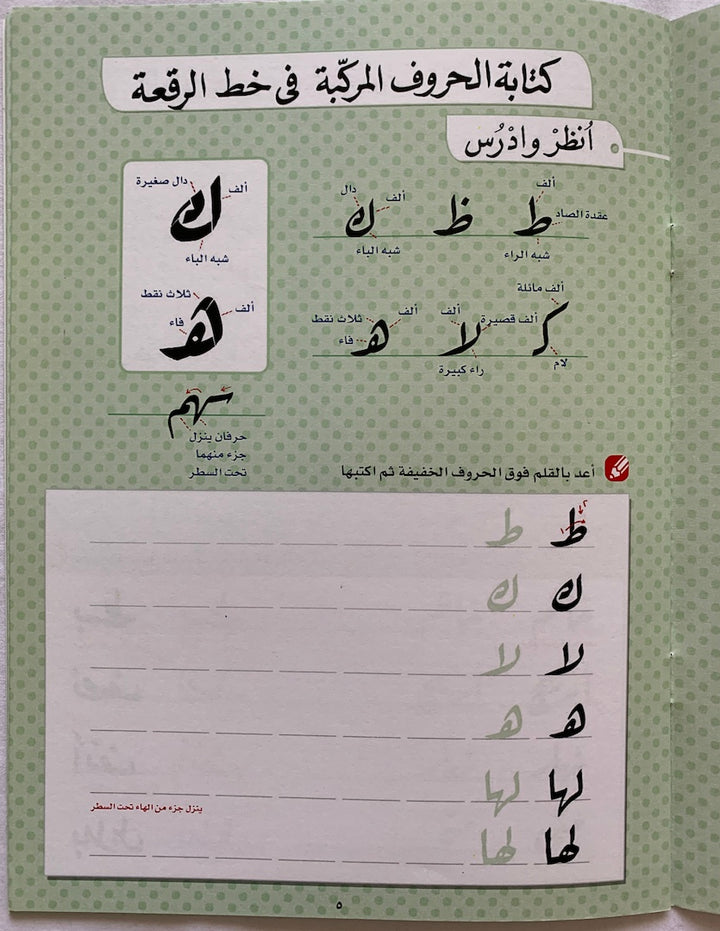 كتابة الحروف المركّبة في خط الرقعة
اُنظرْ وادْرُس
ألف
عقدة الصاد
ط ظ ك
شبه الراء
ألف
دال
شبه الباء
دال صغيرة
ألف
ك
شبه الباء
ألف مائلة
ألف قصيرة
ألف
ألف
ثلاث نقط
فاء
كـ لا هـ
لام
راء كبيرة
ثلاث نقط
ألف
فاء
هـ
سهم
حرفان ينزل
جزء منهما
تحت السطر
أعد بالقلم فوق الحروف الخفيفة ثم اكتبها
ط ط
ك ك
لا لا
هـ هـ
لها لها
ينزل جزء من الهاء تحت السطر
لها لها
٥